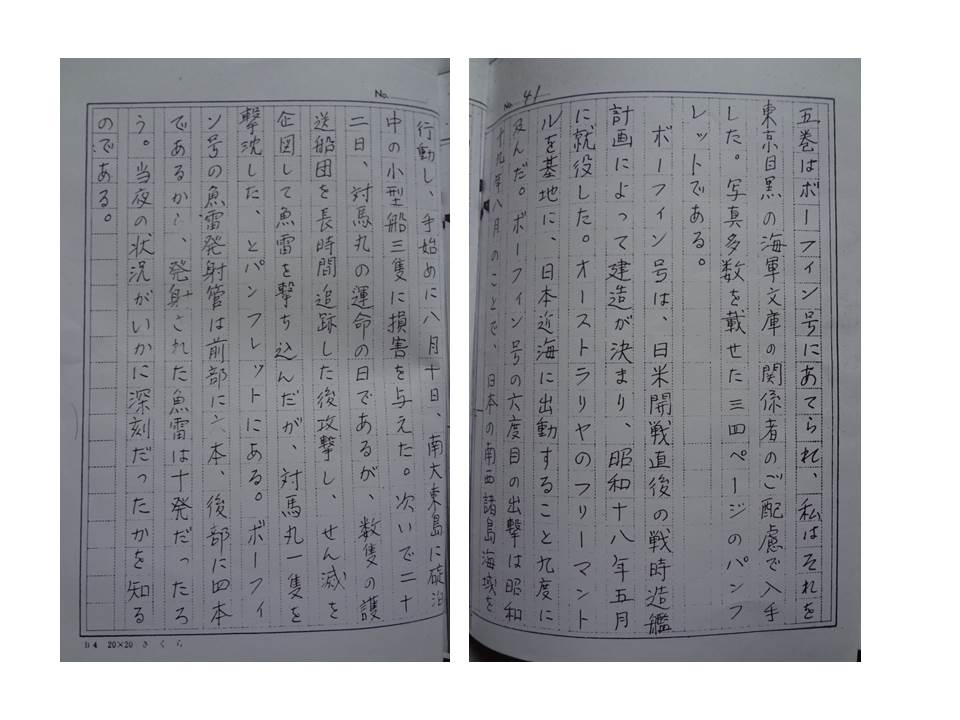 No. 41
五巻はボーフィン号にあてられ、私はそれを
東京目黒の海軍文庫の関係者のご配慮で入手
した。写真多数を載せた三四ページのパンフ
レットである。
ボーフィン号は、日米開戦直後の戦時造艦
計画によって建造が決まり、昭和十八年五月
に就役した。オーストラリヤのフリーマント
ルを基地に、日本近海に出動すること九度に
及んだ。ボーフィン号の六度目の出撃は昭和
十九年八月のことで、日本の南西諸島海域を
No.
行動し、手始めに八月十日、南大東島に碇泊
中の小型船三隻に損害を与えた。次いで二十
二日、対馬丸の運命の日であるが、数隻の護
送船団を長時間追跡した後攻撃し、せん滅を
企図して魚雷を撃ち込んだが、対馬丸一隻を
撃沈した、とパンフレットにある。ボーフィ
ン号の魚雷発射管は前部に六本、後部に四本
であるから、発射された魚雷は十発だったろ
う。当夜の状況がいかに深刻だったかを知る
のである。
B4 20×20 さくら